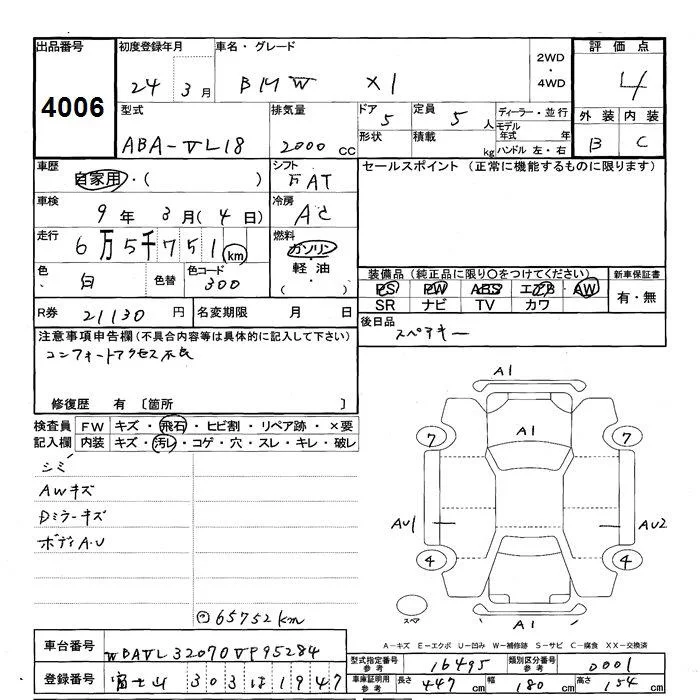 出品番号
4006
初度登録年月
24年 3月
車名・グレード
BMW X1
2WD
・
4WD
評価点
4
外装 内装
B C
型式
ABA-VL18
排気量
2000 cc
ドア
5
定員
5 人
形状
積載
kg
ディーラー・並行
モデル年式 年
ハンドル 左・右
車歴
自家用・( )
シフト
FAT
セールスポイント (正常に機能するものに限ります)
車検
9年 3月(4日)
冷房
AC
走行
6万5千751km
燃料
ガソリン
軽油
( )
色
白
色替
色コード
300
装備品 (純正品に限り○をつけてください)
PS PW ABS エアB AW
SR ナビ TV カワ
新車保証書
有・無
R券
21130円
名変期限 月 日
後日品
スペアキー
注意事項申告欄 (不具合内容等は具体的に記入して下さい)
コンフォートアクセス不良
修復歴 有 〔箇所 〕
検査員記入欄
FW キズ・飛石・ヒビ割・リペア跡・×要
内装 キズ・汚レ・コゲ・穴・スレ・キレ・破レ
シミ
AWキズ
Dミラーキズ
ボディA.U
65752km
A1
A1
7 7
AU1 AU2
4 4
スペア
A1
A-キズ E-エクボ U-凹み W-補修跡 S-サビ C-腐食 XX-交換済
車台番号
WBAVL32070VP95284
登録番号
富士山 303 は 1947
型式指定番号 参考
16495
類別区分番号 参考
0001
車庫証明用 参考
長さ 447cm
幅 180cm
高さ 154cm